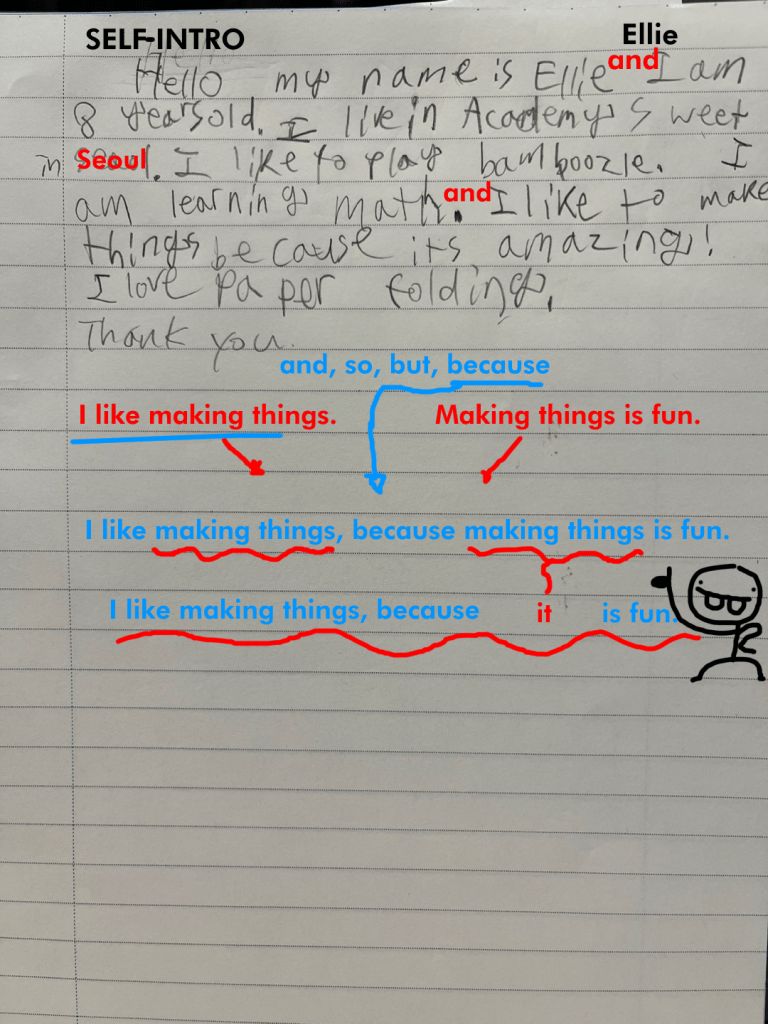 SELF-INTRO Ellie
Hello my name is Ellie and I am
8 years old. I live in Academy Sweet
in Seoul. I like to play bamboozle. I
am learning math. and I like to make
things because its amazing!
I love paper folding.
Thank you.
and, so, but, because
I like making things. Making things is fun.
I like making things, because making things is fun.
I like making things, because it is fun.